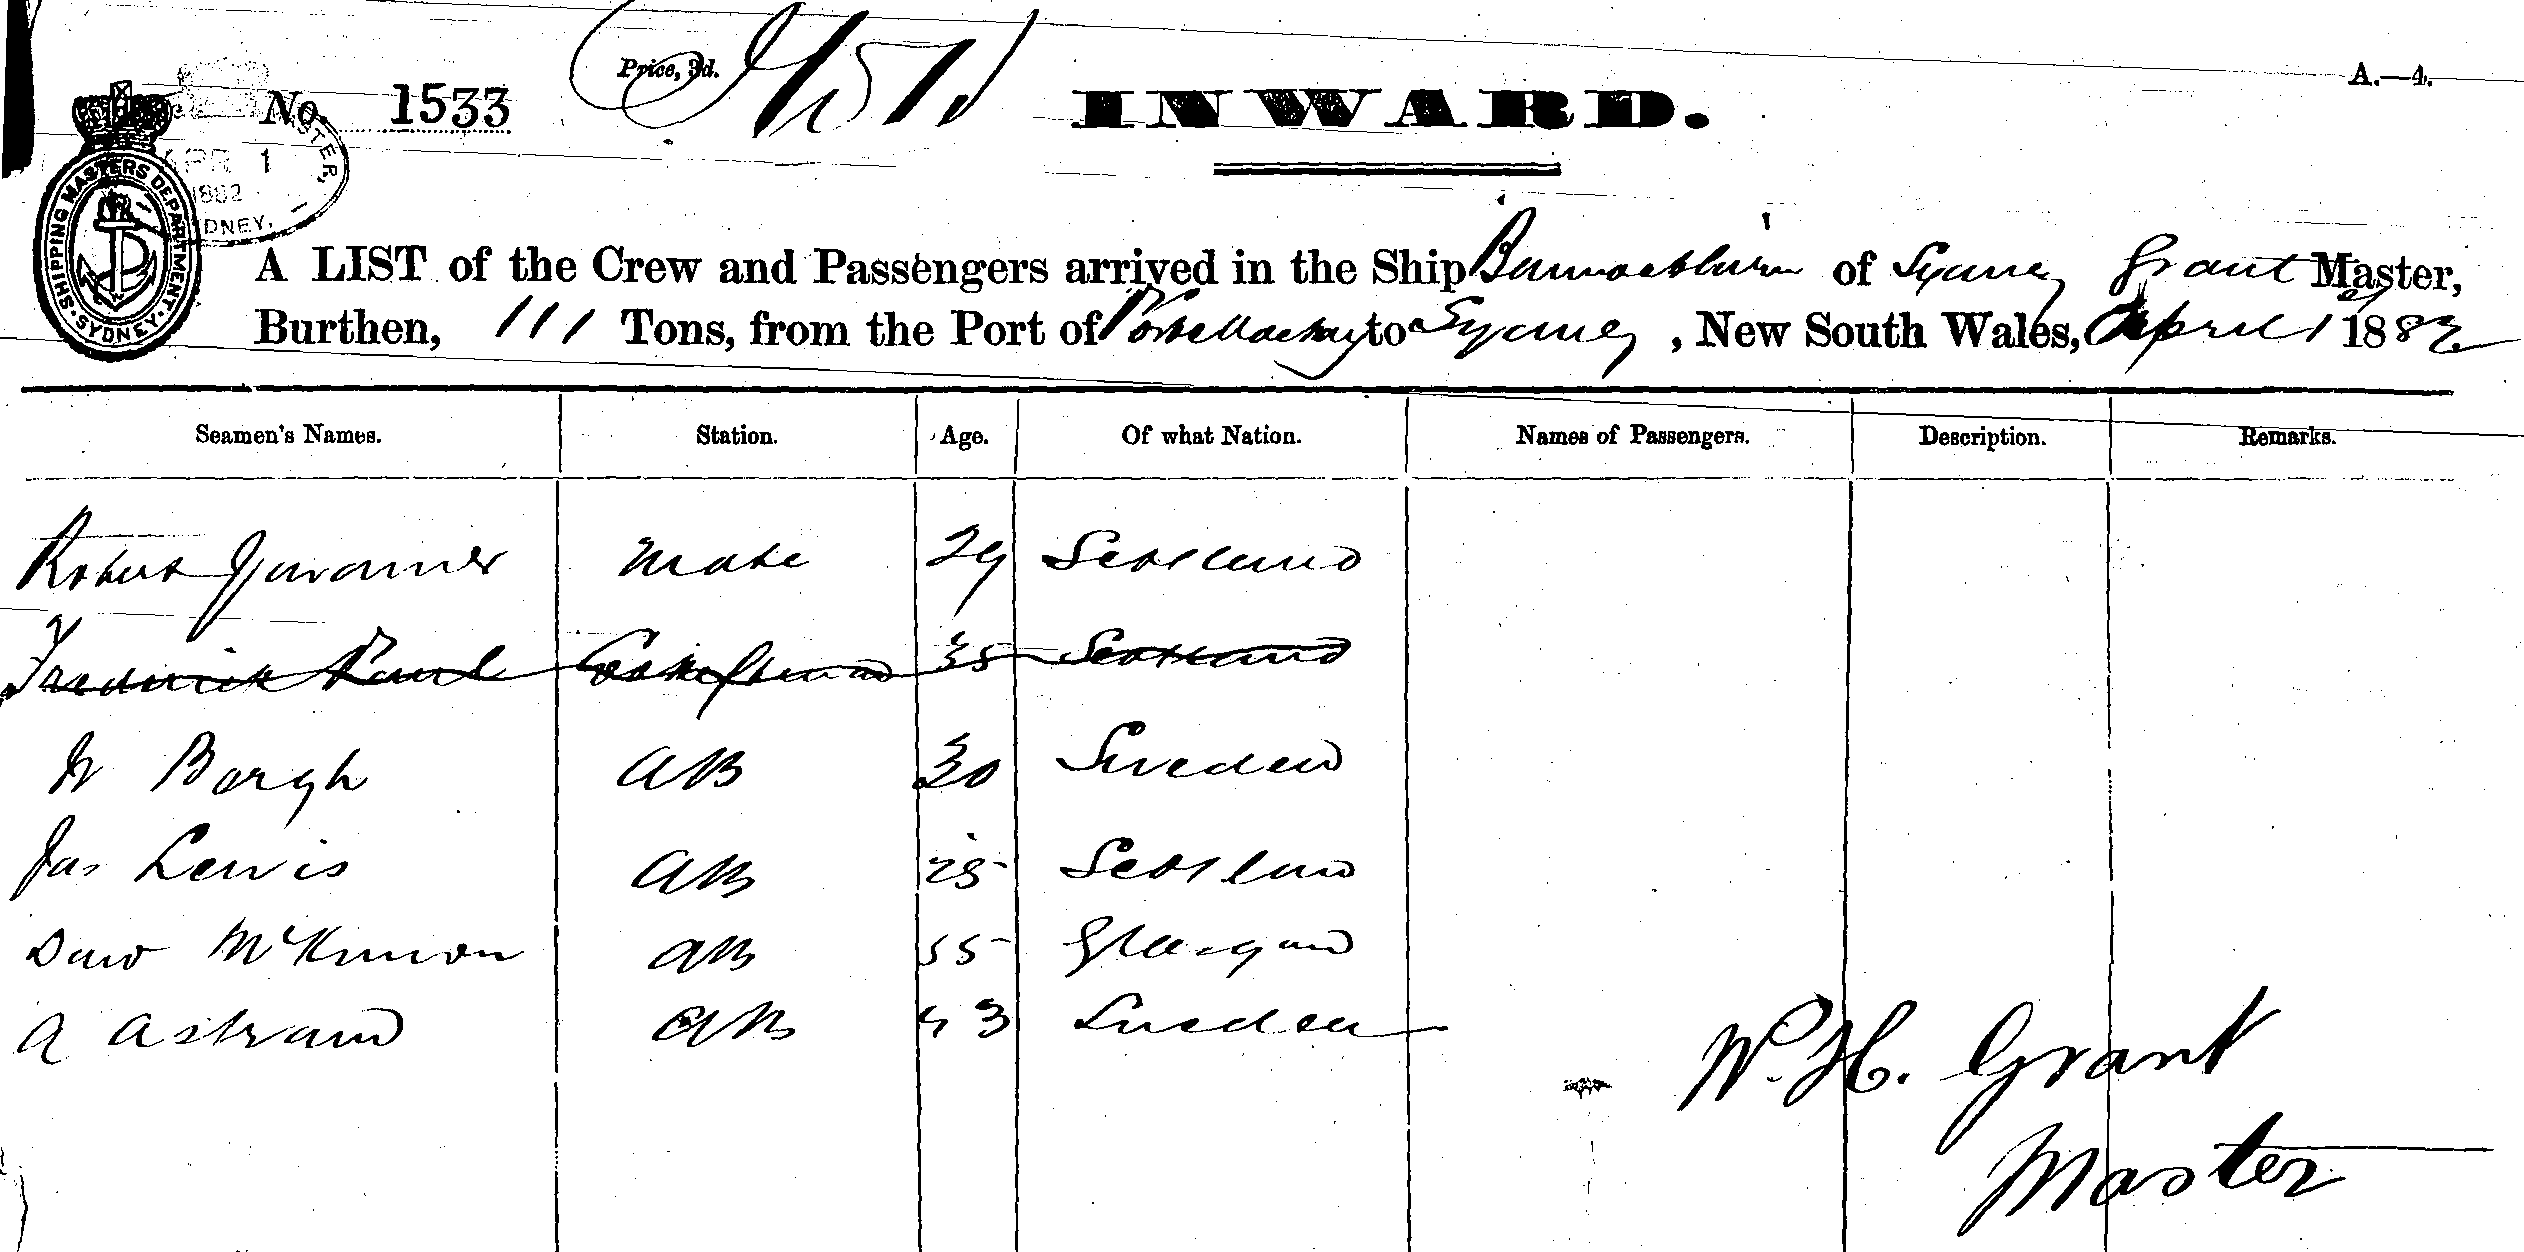 Price, 3d.
A.—4.
No. 1533
INWARD.
APR 1
1882
SYDNEY.
SHIPPING MASTERS DEPARTMENT
SYDNEY
A LIST of the Crew and Passengers arrived in the Ship Bannockburn of Sydney Grant Master,
Burthen, 111 Tons, from the Port of Port Mackay to Sydney, New South Wales, April 1st 1882
Seamen's Names. Station. Age. Of what Nation. Names of Passengers. Description. Remarks.
Robert Mate 29 Scotland
Frederick Paul Cook & Steward 35 Scotland
Borgh AB 30 Sweden
Jas Lewis AB 25 Scotland
McKinnon AB 55 Glasgow
A Astrand AB 43 Sweden
W. H. Grant
Master